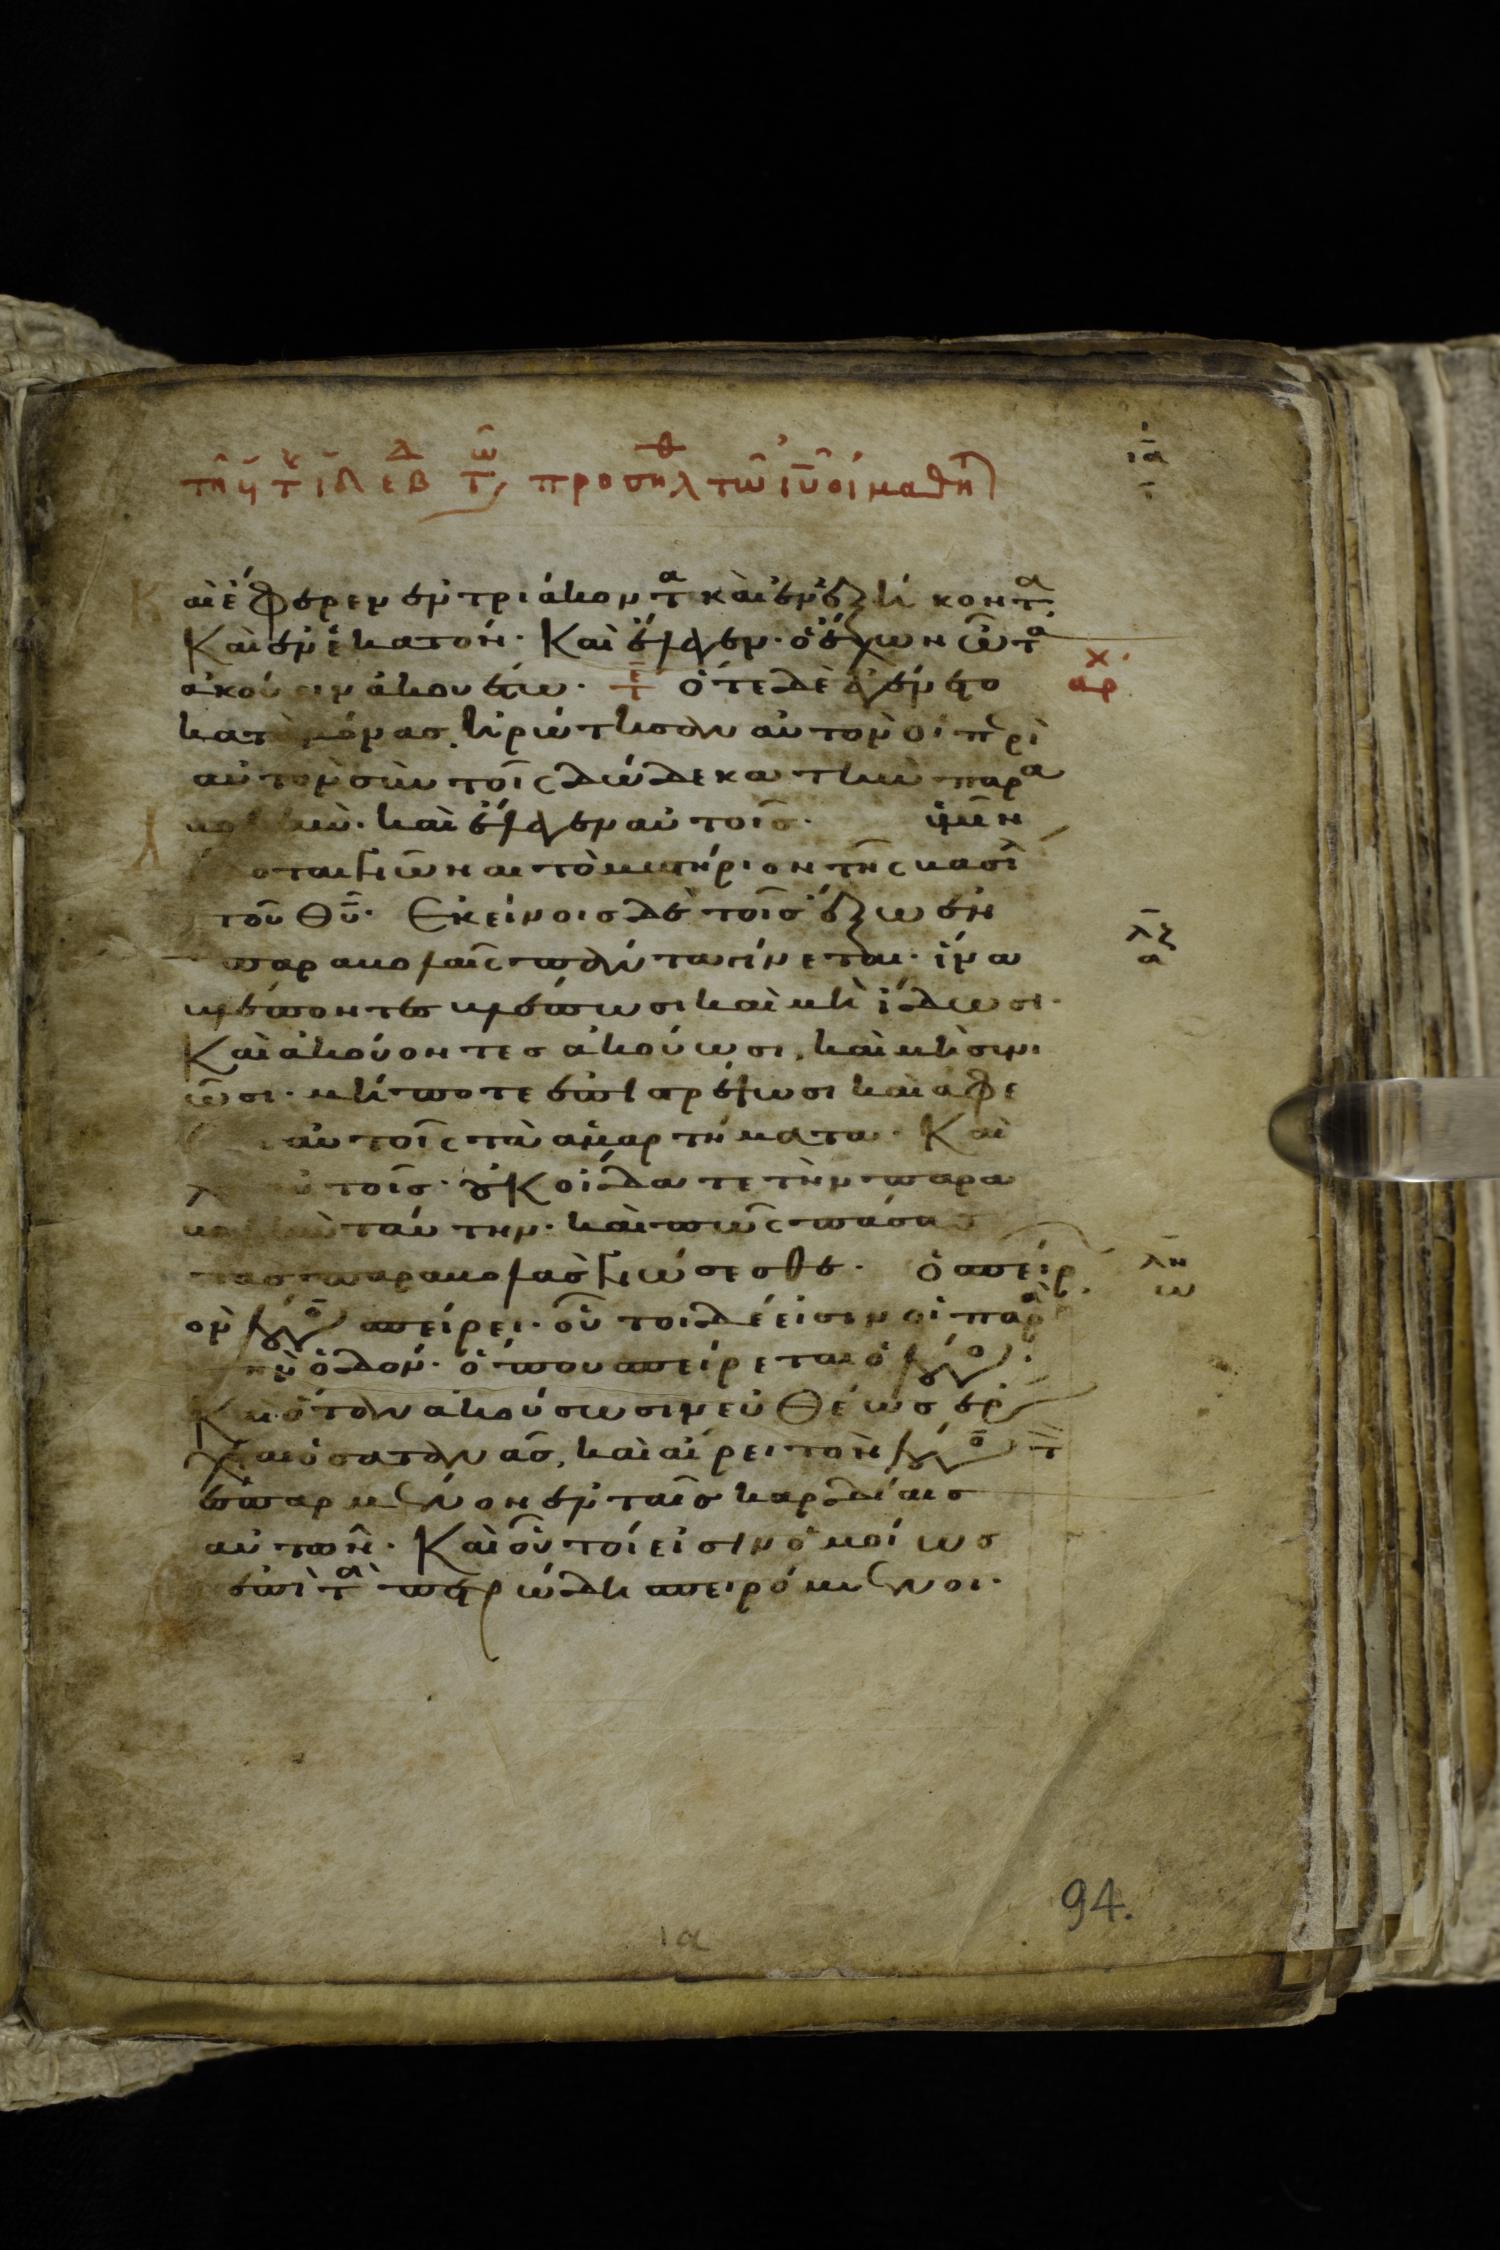 αι ἔφερεν ἐν τριάκοντα καὶ ἐν ἑξήκοντα
Καὶ ἐν ἑκατόν· Καὶ ἔλεγεν· ὁ ἔχων ὦτα
ἀκούειν ἀκουέτω· ὅτε δὲ ἐγένετο
κατὰ μόνας, ἠρώτησαν αὐτὸν οἱ περὶ
αὐτὸν σὺν τοῖς δώδεκα τὴν παρα
βολήν· καὶ ἔλεγεν αὐτοῖς· ὑμῖν
δοται γνῶναι τὸ μυστήριον τῆς βασι
τοῦ θυ· Ἐκείνοις δὲ τοῖς ἔξω ἐν
παραβολαῖς πάντα γίνεται· ἵνα
βλέποντες βλέπωσι καὶ μὴ ἴδωσι·
Καὶ ἀκούοντες ἀκούωσι, καὶ μὴ συνι
ῶσι· μήποτε ἐπιστρέψωσι καὶ ἀφε
αὐτοῖς τὰ ἁμαρτήματα· Καὶ
αὐτοῖς· οὐκ οἴδατε τὴν παρα
βολὴν ταύτην· καὶ πῶς πάσας
τὰς παραβολὰς γνώσεσθε· Ὁ σπείρ
ον λόγον σπείρει· οὗτοι δέ εἰσιν οἱ παρὰ
τὴν ὁδόν· ὅπου σπείρεται ὁ λόγος·
Καὶ ὅταν ἀκούσωσιν εὐθέως ἔρ
χεται ὁ σατανᾶς, καὶ αἴρει τὸν λόγον τ
ἐσπαρμένον ἐν ταῖς καρδίαις
αὐτῶν· Καὶ οὗτοί εἰσιν ὁμοίως
ἐπὶ τὰ πετρώδη σπειρόμενοι·
94.
ια